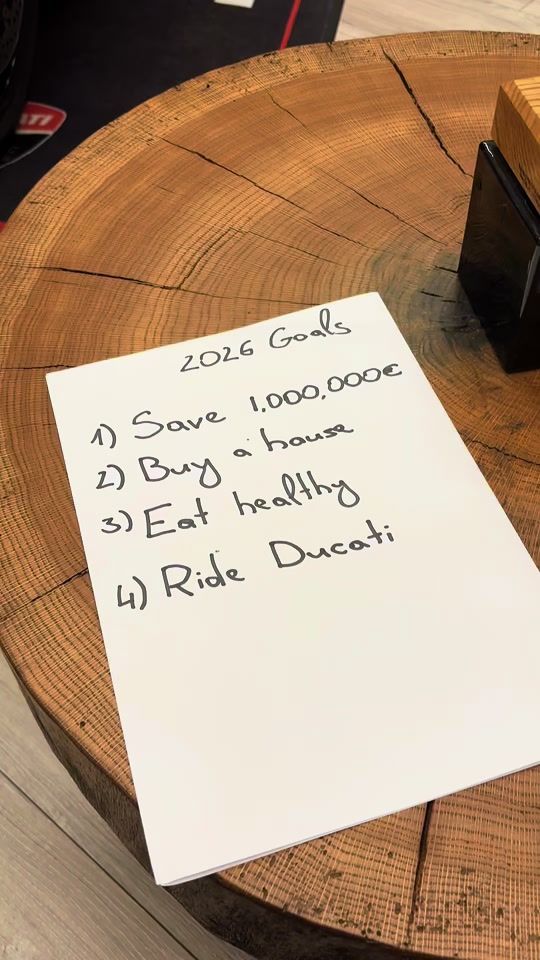 2026 Goals
1) Save 1.000.000€
2) Buy a house
3) Eat healthy
4) Ride Ducati